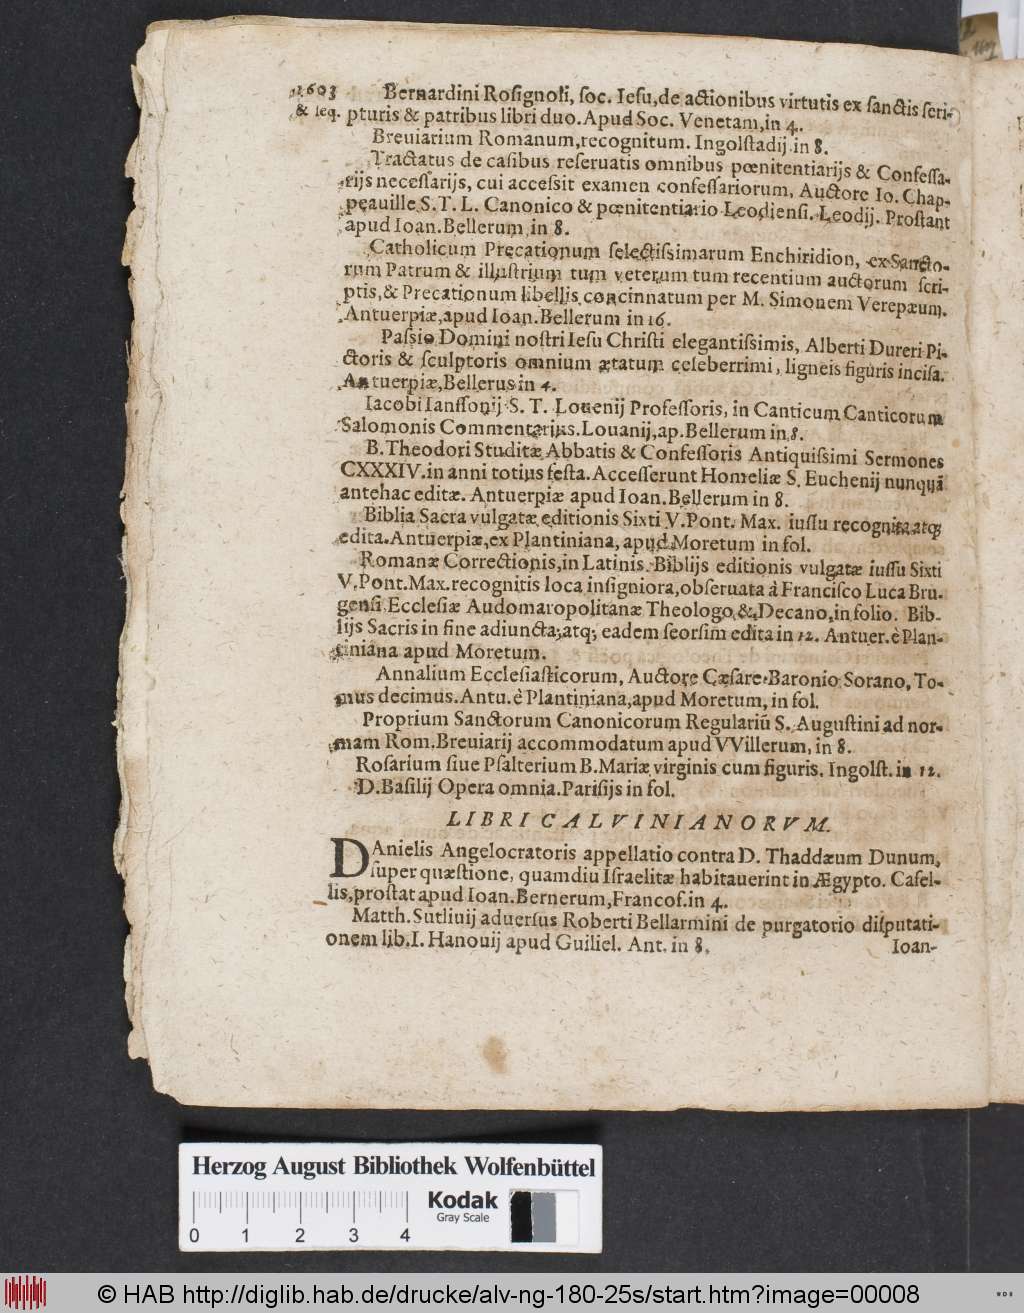 1603
& seq.
Bernardini Rosignoli, soc. Iesu, de actionibus virtutis ex sanctis scri-
pturis & patribus libri duo. Apud Soc. Venetam, in 4.
Breuiarium Romanum, recognitum. Ingolstadij in 8.
Tractatus de casibus reseruatis omnibus pœnitentiarijs & Confessa-
rijs necessarijs, cui accessit examen confessariorum, Auctore Io. Chap-
peauille S. T. L. Canonico & pœnitentiario Leodiensi. Leodij. Prostant
apud Ioan. Bellerum, in 8.
Catholicum Precationum selectissimarum Enchiridion, ex Sancto-
rum Patrum & illustrium tum veterum tum recentium auctorum scri-
ptis, & Precationum libellis concinnatum per M. Simonem Verepæum.
Antuerpiæ, apud Ioan. Bellerum in 16.
Passio Domini nostri Iesu Christi elegantissimis, Alberti Dureri Pi-
ctoris & sculptoris omnium ætatum celeberrimi, ligneis figuris incisa.
Antuerpiæ, Bellerus in 4.
Iacobi Ianssonij S. T. Louenij Professoris, in Canticum Canticorum
Salomonis Commentarius. Louanij, ap. Bellerum in 8.
B. Theodori Studitæ Abbatis & Confessoris Antiquissimi Sermones
CXXXIV. in anni totius festa. Accesserunt Homeliæ S. Euchenij nunquā
antehac editæ. Antuerpiæ apud Ioan. Bellerum in 8.
Biblia Sacra vulgatæ editionis Sixti V. Pont. Max. iussu recognita atq;
edita. Antuerpiæ, ex Plantiniana, apud Moretum in fol.
Romanæ Correctionis, in Latinis Biblijs editionis vulgatæ iussu Sixti
V. Pont. Max. recognitis loca insigniora, obseruata à Francisco Luca Bru-
gensi Ecclesiæ Audomaropolitanæ Theologo & Decano, in folio. Bib-
lijs Sacris in fine adiuncta, atq; eadem seorsim edita in 12. Antuer. è Plan-
tiniana apud Moretum.
Annalium Ecclesiasticorum, Auctore Cæsare Baronio Sorano, To-
mus decimus. Antu. è Plantiniana, apud Moretum, in fol.
Proprium Sanctorum Canonicorum Regulariū S. Augustini ad nor-
mam Rom. Breuiarij accommodatum apud VVillerum, in 8.
Rosarium siue Psalterium B. Mariæ virginis cum figuris. Ingolst. in 12.
D. Basilij Opera omnia. Parisijs in fol.
LIBRI CALVINIANORVM.
DAnielis Angelocratoris appellatio contra D. Thaddæum Dunum,
super quæstione, quamdiu Israelitæ habitauerint in Ægypto. Casel-
lis, prostat apud Ioan. Bernerum, Francof. in 4.
Matth. Sutliuij aduersus Roberti Bellarmini de purgatorio disputati-
onem lib. I. Hanouij apud Guiliel. Ant. in 8.
Ioan-
Herzog August Bibliothek Wolfenbüttel
0 1 2 3 4
Kodak
Gray Scale
© HAB http://diglib.hab.de/drucke/alv-ng-180-25s/start.htm?image=00008